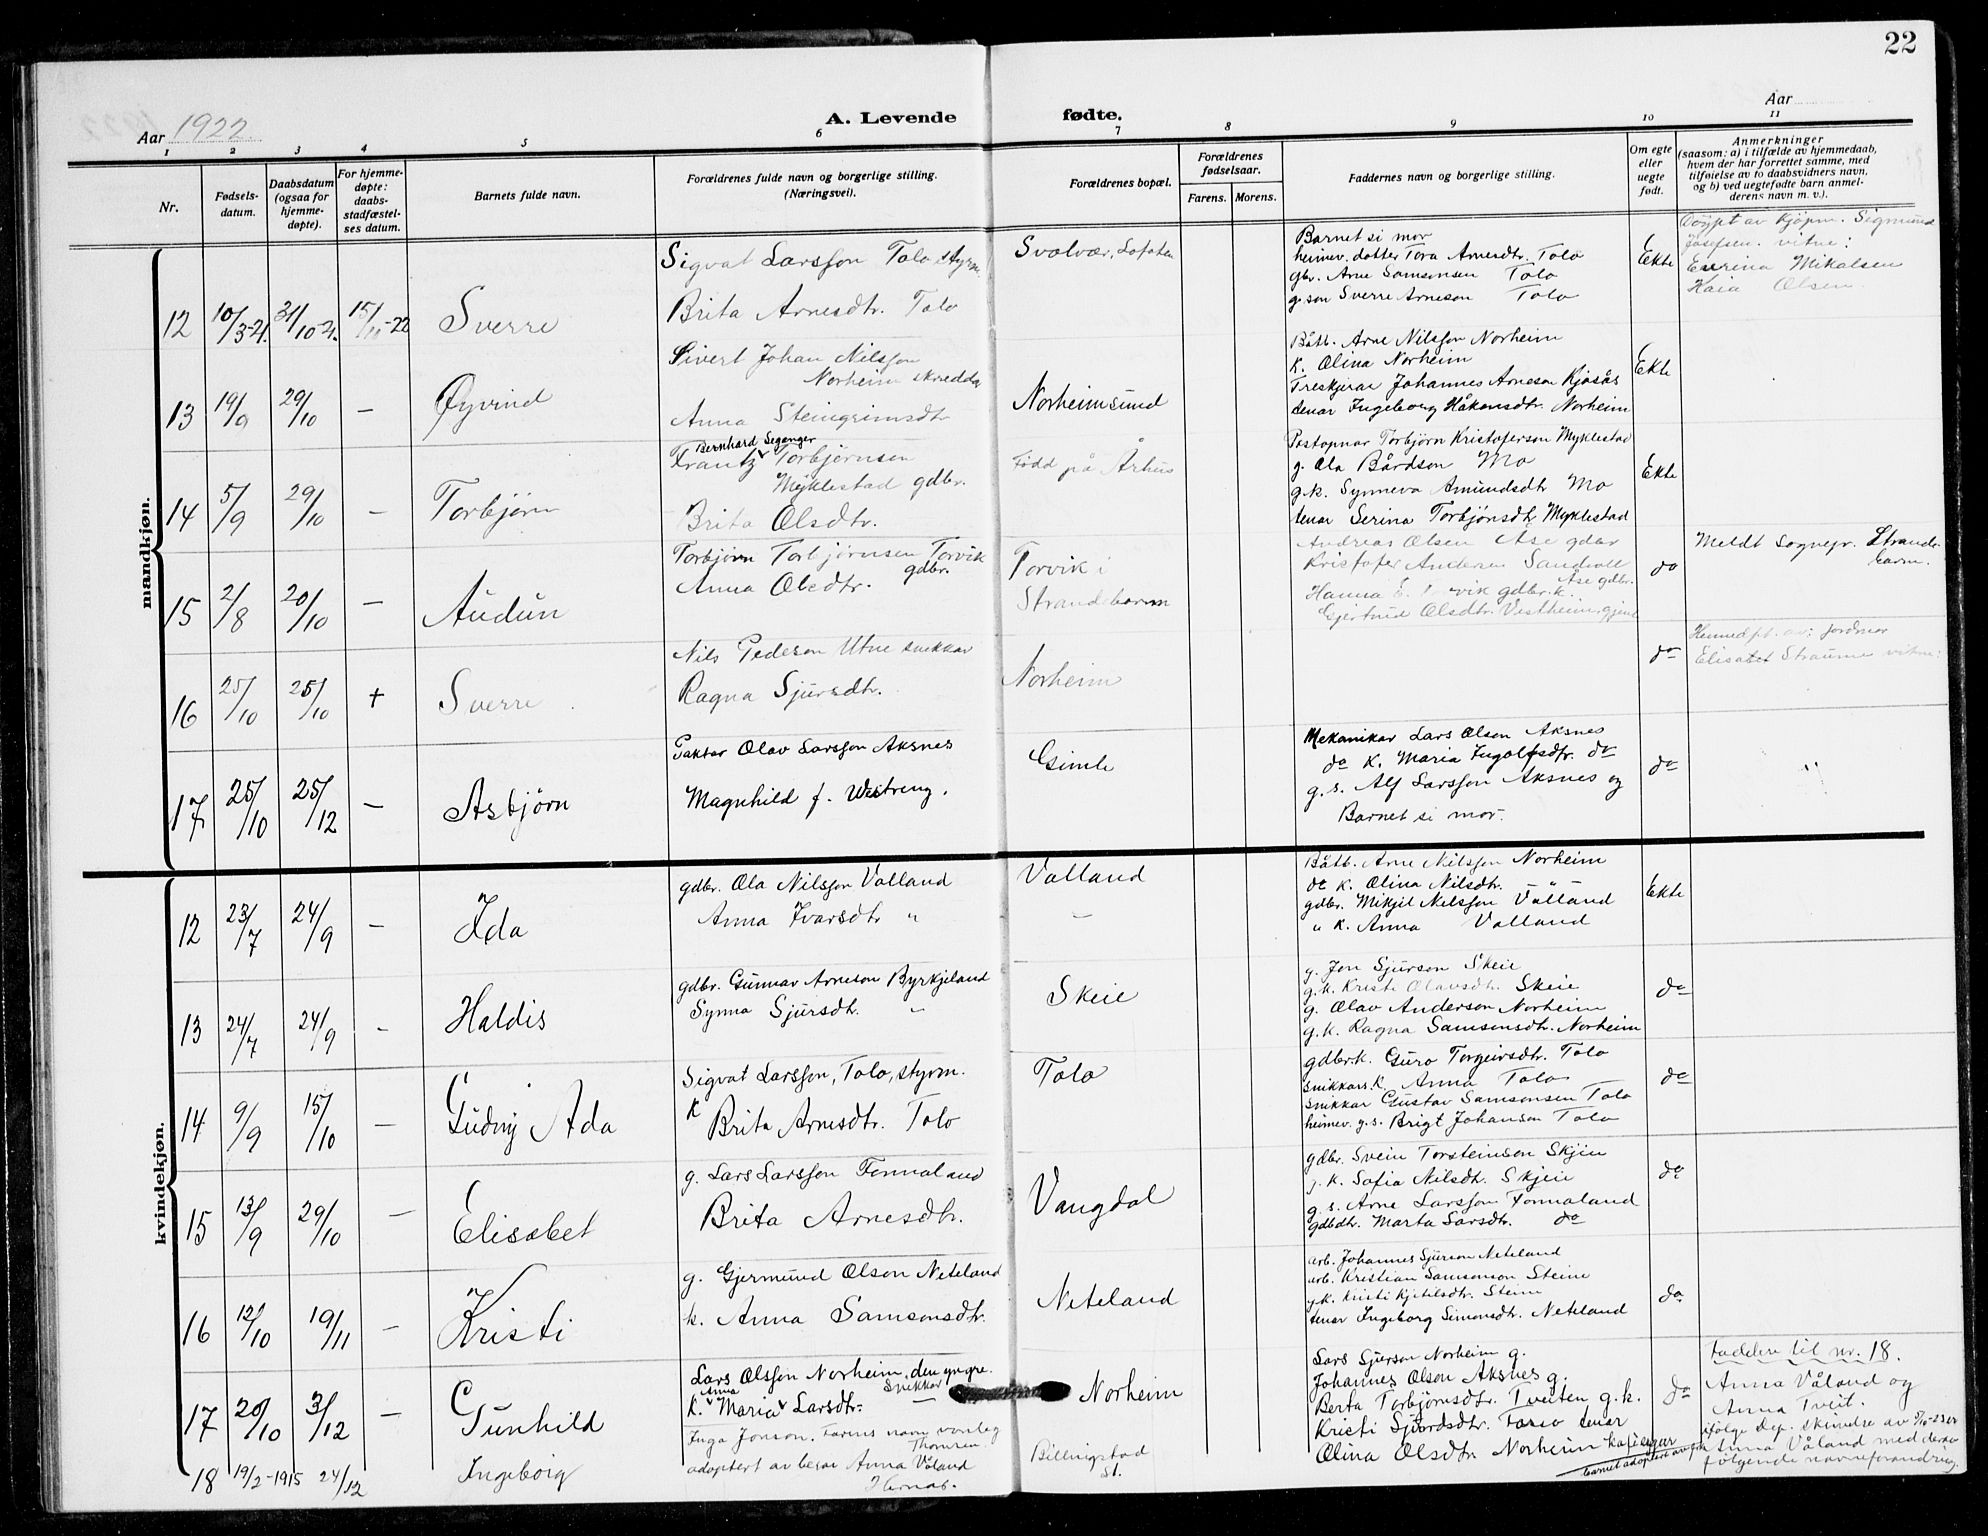 22
Aar 1922.
A. Levende fødte.
Aar
1 2 3 4 5 6 7 8 9 10 11
Nr.
Fødsels-
datum.
Daabsdatum
(ogsaa for
hjemme-
døpte).
For hjemme-
døpte:
daabs-
stadfæstel-
ses datum.
Barnets fulde navn.
Forældrenes fulde navn og borgerlige stilling.
(Næringsvei).
Forældrenes bopæl.
Forældrenes
fødselsaar.
Farens. Morens.
Faddernes navn og borgerlige stilling.
Om egte
eller
uegte
født.
Anmerkninger
(saasom: a) i tilfælde av hjemmedaab,
hvem der har forrettet samme, med
tilføielse av to daabsvidners navn,
og b) ved uegtefødte barn anmel-
derens navn m. v.).
mandkjøn.
12 10/3-21. 31/10-21. 15/11-22 Sverre
Sigvat Larsson Tolo styrm
Brita Arnesdtr. Tolo
Svolvær, Lofoten
Barnet si mor
heimev. dotter Tora Arnesdtr. Tolo
gbr. Arne Samsonsen Tolo
g. son Sverre Arneson Tolo
Ekte
Døypt av Kjøpm. Sigmund
Josefsen. vitne:
Mikalsen
Kaia Olsen.
13 19/9 29/10 — Øyvind
Sivert Johan Nilsson
Norheim skredda
Anna Steingrimsdtr
Norheimsund
Båtb. Arne Nilsson Norheim
K. Olina Norheim
Treskjerar Johannes Arneson Kjosås
tenar Ingeborg Håkonsdtr. Norheim
Ekte
14 5/9 29/10 — Torbjørn
Bernhard Seganger
Frantz Torbjørnsen
Myklestad gdbr.
Brita Olsdtr.
Fødd på Århus
Postopnar Torbjørn Kristoferson Myklestad
g. Ola Bårdson Mo
g.k. Synneva Amundsdtr Mo
tenar Serina Torbjónsdtr Myklestad
Ekte
15 2/8 20/10 — Audun
Torbjørn Torbjørnsen Torvik
gdbr.
Anna Olsdtr.
Torvik i
Strandebarm
Andreas Olsen Åse gdbr
Kristofer Andersen Sandvoll
Åse gdbr.
Hanna E. Torvik gdbr.k.
Gjertrud Olsdtr. Vestheim, gjend
do
Meldt Sognepr. Strande-
barm.
16 25/10 25/10 + Sverre
Nils Pederson Utne snekkar
Ragna Sjursdtr.
Norheim
do
Heimedpt. av: jordmor
Elisabet Straume vitne:
17 25/10 25/12 — Asbjørn
Faktor Olav Larsson Aksnes
Magnhild f. Westreng.
Gimle
Mekanikar Lars Olson Aksnes
do K. Maria Ingolfsdtr. do
g. s. Alf Larsson Aksnes og
Barnet si mor.
do
kvindekjøn.
12 23/7 24/9 — Ida
gdbr. Ola Nilsson Valland
Anna Ivarsdtr "
Valland
—
Båtb. Arne Nilsson Norheim
do K. Olina Nilsdtr. — " —
gdbr. Mikjel Nilsson Valland
" K. Anna Valland
Ekte
13 24/7 24/9 — Haldis
gdbr. Gunnar Arneson Byrkjeland
Synna Sjursdtr. "
Skeie
g. Jon Sjurson Skeie
g.k. Kristi Olavsdtr. Skeie
g. Olav Anderson Norheim
g.k. Ragna Samsonsdtr. Norheim
do
14 9/9 15/10 — Gudny Ada
Sigvat Larsson, Tolo, styrm.
K Brita Arnesdtr. Tolo
Tolo
gdbr.k. Guro Torgeirsdtr. Tolo
snikkars.k. Anna Tolo
snikkar Gustav Samsonsen Tolo
heimev. g.s. Brigt Johanson Tolo
do
15 13/9 29/10 — Elisabet
g. Lars Larsson Fonnaland
Brita Arnesdtr.
Vangdal
gdbr. Svein Torsteinson Skjein
g.k. Sofia Nilsdtr. Skjein
g. s. Arne Larsson Fonnaland
gdbdtr. Marta Larsdtr. do
do
16 12/10 19/11 — Kristi
g. Gjermund Olson Neteland
k. Anna Samsonsdtr.
Neteland
arb. Johannes Sjurson Neteland
arb. Kristian Samsonson Steine
g.k. Kristi Kjetilsdtr. Steine
tenar Ingeborg Simonsdtr. Neteland
do
17 20/10 3/12 — Gunhild
Lars Olsson Norheim, den yngre.
Snikkar
Anna
K. Maria Larsdtr. —
Norheim
Lars Sjurson Norheim g.
Johannes Olson Aksnes g.
Berta Torbjørnsdtr. Tveiten g.k.
Kristi Sjurdsdtr. tenar
Olina Olsdtr Norheim kafeeigar
do
Faddere til nr. 18.
Anna Våland og
Anna Tveit.
18 19/2-1915 24/12 Ingeborg
Inga Jonson. Farens navn
adoptert av Anna Våland
Billingstad
St.
barnet adoptert av
ifølge dep. skrivelse av
Anna Våland med derav
følgende navneforandring.